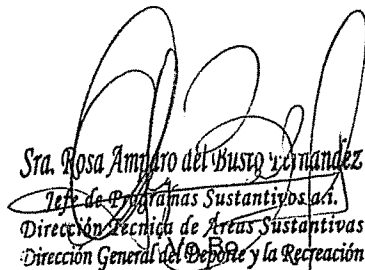 Sra. Rosa Amparo del Busto Fernandez
Jefe de Programas Sustantivos a.i.
Dirección Técnica de Areas Sustantivas
Vo.Bo.
Dirección General del Deporte y la Recreación